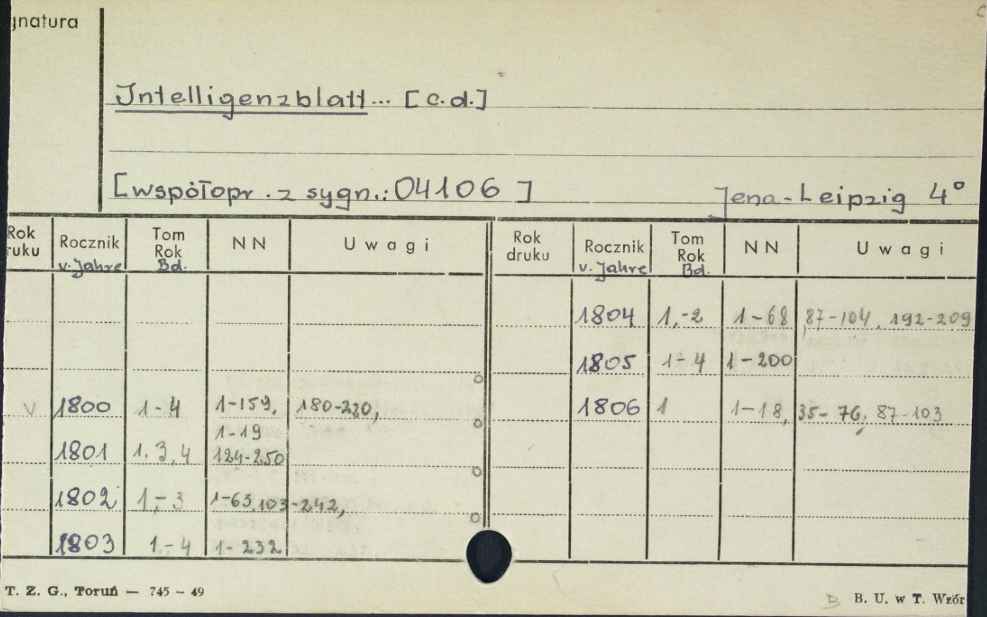 gnatura
Intelligenzblatt... [c.d.]
[współopr. z sygn.: 04106 ] Jena-Leipzig 4°
Rok ruku Rocznik v. Jahre Tom Rok Bd. NN Uwagi
1800 1-4 1-159, 180-220,
1801 1. 3, 4 1-19 124-250
1802 1,-3 1-63, 103-242,
1803 1.-4 1-232
Rok druku Rocznik v. Jahre Tom Rok Bd. NN Uwagi
1804 1,-2 1-68 87-104, 192-209
1805 1-4 1-200
1806 1 1-18, 35-76, 87-103
T. Z. G., Toruń — 745 - 49
B. U. w T. Wzór